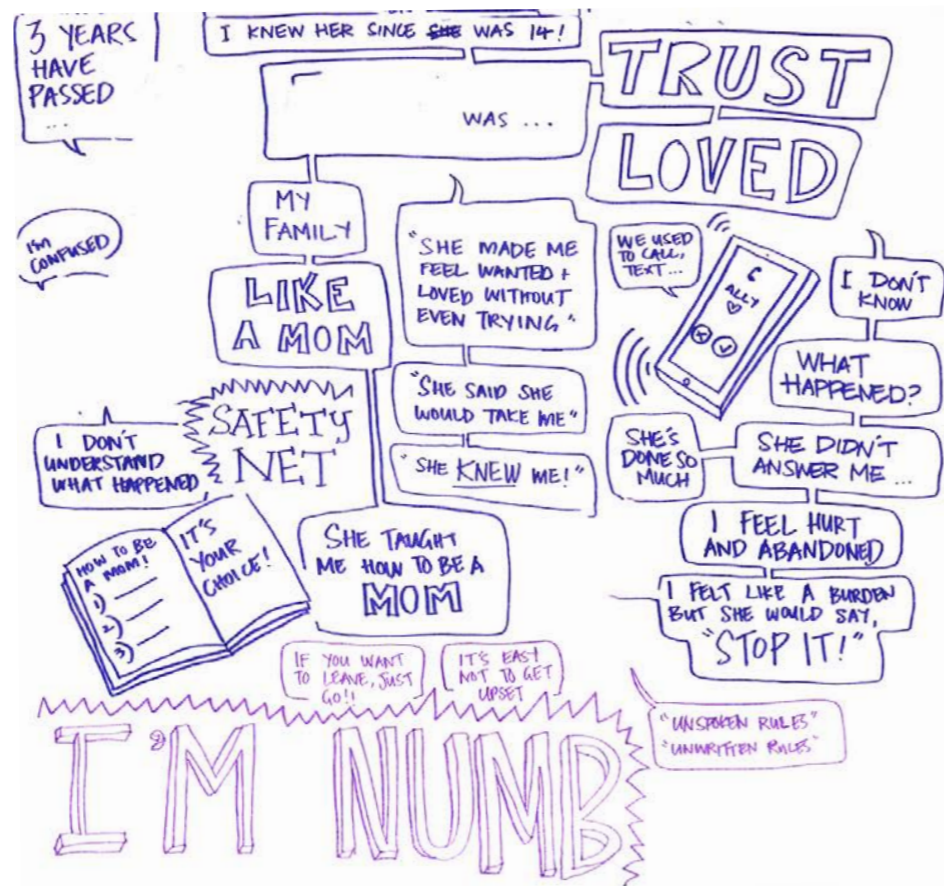 3 YEARS
HAVE
PASSED
...
I KNEW HER SINCE SHE WAS 14!
WAS ...
TRUST
LOVED
MY
FAMILY
LIKE
A MOM
I'M
CONFUSED
"SHE MADE ME
FEEL WANTED +
LOVED WITHOUT
EVEN TRYING"
"SHE SAID SHE
WOULD TAKE ME"
"SHE KNEW ME!"
WE USED
TO CALL,
TEXT...
ALLY
I DON'T
KNOW
WHAT
HAPPENED?
SHE DIDN'T
ANSWER ME ...
SHE'S
DONE SO
MUCH
I FEEL HURT
AND ABANDONED
I FELT LIKE A BURDEN
BUT SHE WOULD SAY,
"STOP IT!"
SAFETY
NET
I DON'T
UNDERSTAND
WHAT HAPPENED
HOW TO BE
A MOM!
1)
2)
3)
IT'S
YOUR
CHOICE!
SHE TAUGHT
ME HOW TO BE A
MOM
IF YOU WANT
TO LEAVE, JUST
GO!!
IT'S EASY
NOT TO GET
UPSET
"UNSPOKEN RULES"
"UNWRITTEN RULES"
I'M NUMB